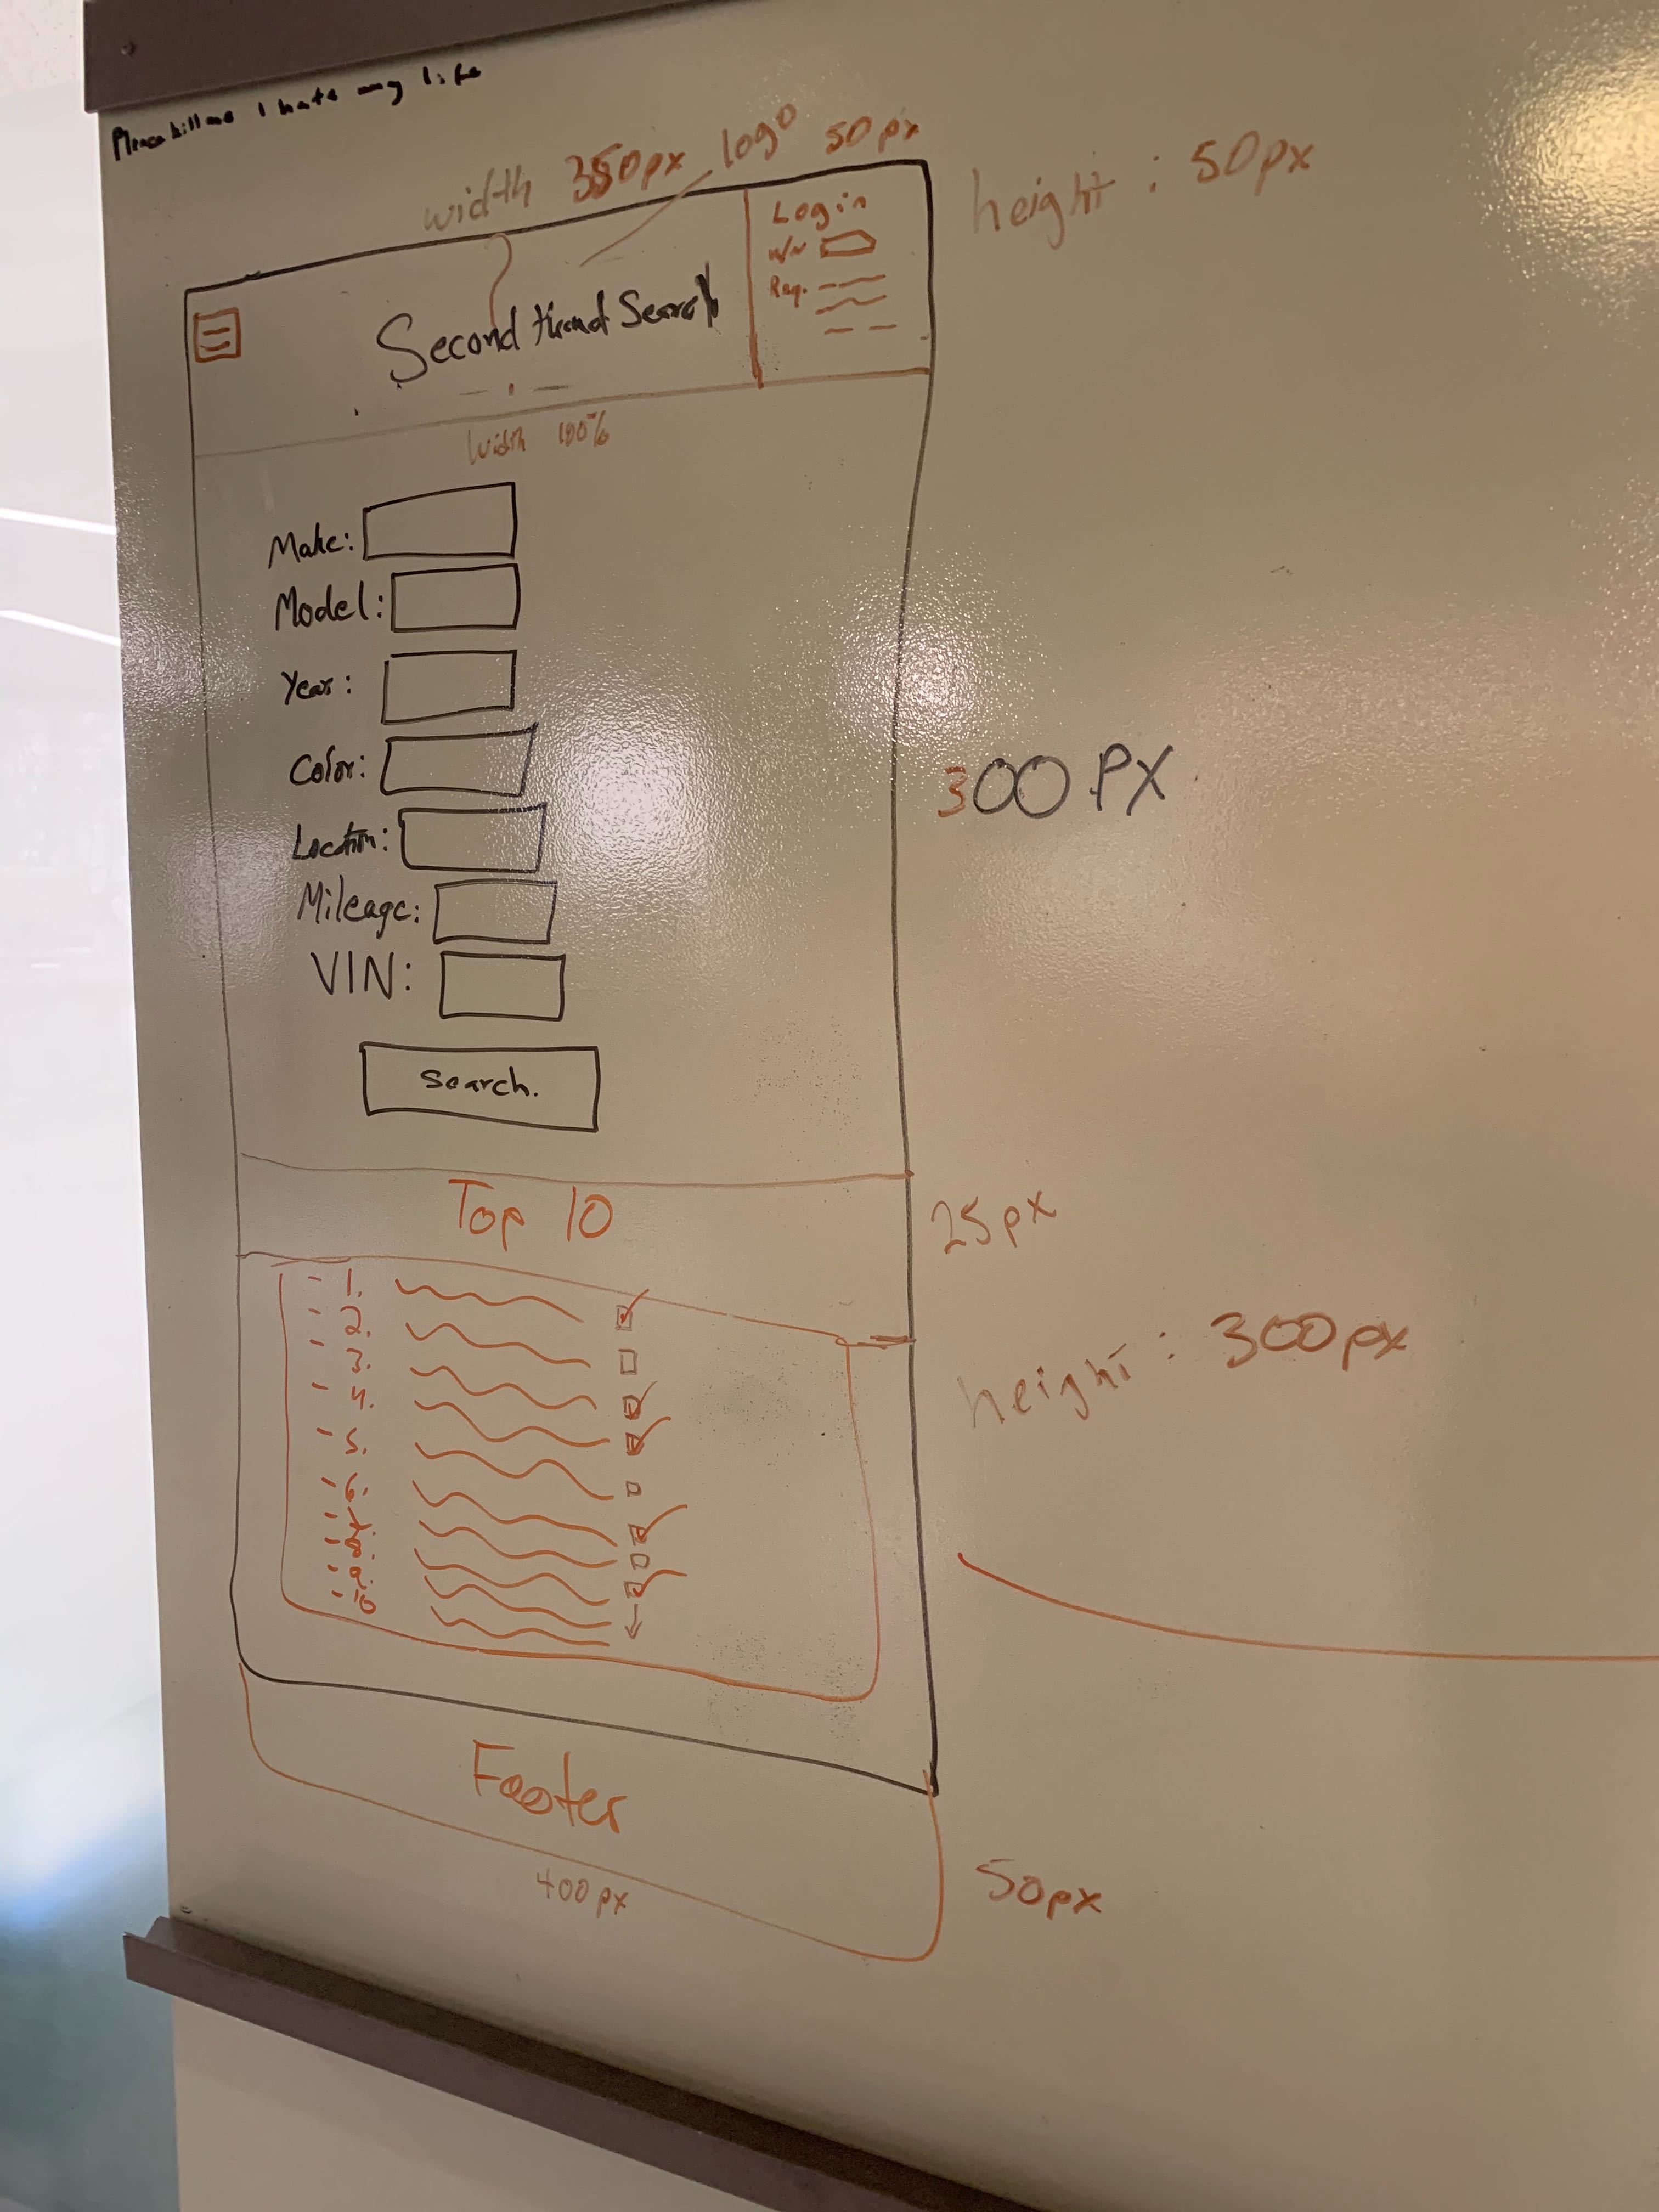 Please kill me I hate my life
width 350px logo 50px
height: 50px
Login
Second Hand Search
Reg.
width 100%
Make:
Model:
Year:
Color:
300 PX
Location:
Mileage:
VIN:
Search.
Top 10
25px
1.
2.
3.
height: 300px
4.
5.
6.
7.
8.
9.
10
Footer
400px
50px